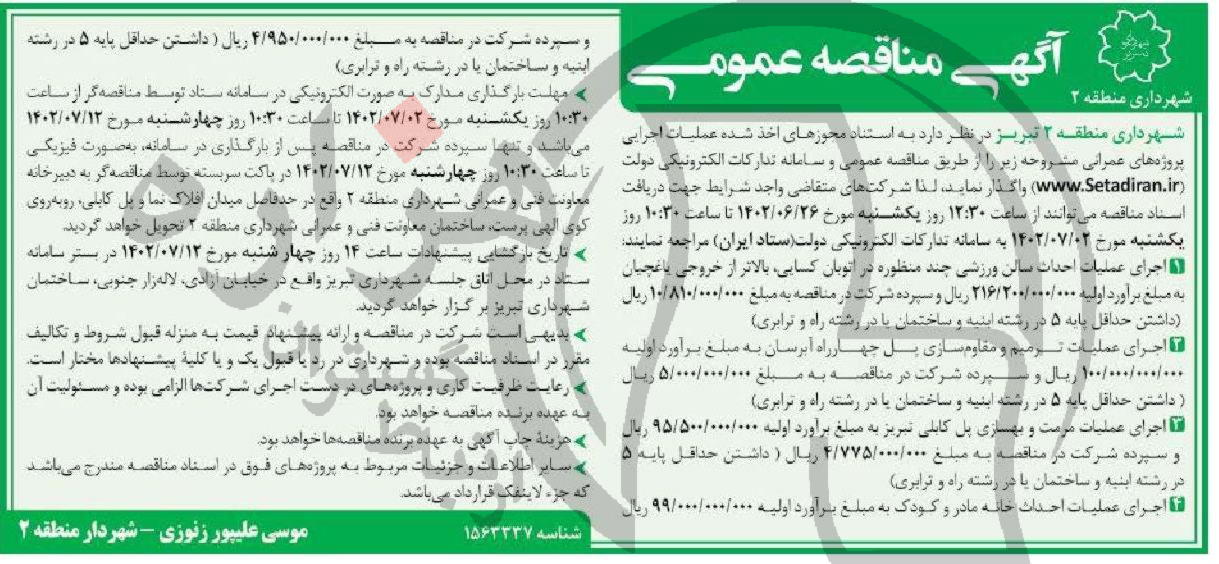 آگهی مناقصه عمومی
شهرداری منطقه ۲
شهرداری منطقه ۲ تبریز در نظر دارد به استناد مجوزهای اخذ شده عملیات اجرایی
پروژه‌های عمرانی مشروحه زیر را از طریق مناقصه عمومی و سامانه تدارکات الکترونیکی دولت
(www.Setadiran.ir) واگذار نماید، لذا شرکت‌های متقاضی واجد شرایط جهت دریافت
اسناد مناقصه می‌توانند از ساعت ۱۲:۳۰ روز یکشنبه مورخ ۱۴۰۲/۰۶/۲۶ تا ساعت ۱۰:۳۰ روز
یکشنبه مورخ ۱۴۰۲/۰۷/۰۲ به سامانه تدارکات الکترونیکی دولت(ستاد ایران) مراجعه نمایند:
۱ اجرای عملیات احداث سالن ورزشی چند منظوره در اتوبان کسایی، بالاتر از خروجی باغچیان
به مبلغ برآورد اولیه ۲۱۶/۲۰۰/۰۰۰/۰۰۰ ریال و سپرده شرکت در مناقصه به مبلغ ۱۰/۸۱۰/۰۰۰/۰۰۰ ریال
(داشتن حداقل پایه ۵ در رشته ابنیه و ساختمان یا در رشته راه و ترابری)
۲ اجرای عملیات ترمیم و مقاوم‌سازی پل چهارراه آبرسان به مبلغ برآورد اولیه
۱۰۰/۰۰۰/۰۰۰/۰۰۰ ریال و سپرده شرکت در مناقصه به مبلغ ۵/۰۰۰/۰۰۰/۰۰۰ ریال
( داشتن حداقل پایه ۵ در رشته ابنیه و ساختمان یا در رشته راه و ترابری)
۳ اجرای عملیات مرمت و بهسازی پل کابلی تبریز به مبلغ برآورد اولیه ۹۵/۵۰۰/۰۰۰/۰۰۰ ریال
و سپرده شرکت در مناقصه به مبلغ ۴/۷۷۵/۰۰۰/۰۰۰ ریال ( داشتن حداقل پایه ۵
در رشته ابنیه و ساختمان یا در رشته راه و ترابری)
۴ اجرای عملیات احداث خانه مادر و کودک به مبلغ برآورد اولیه ۹۹/۰۰۰/۰۰۰/۰۰۰ ریال
و سپرده شرکت در مناقصه به مبلغ ۴/۹۵۰/۰۰۰/۰۰۰ ریال ( داشتن حداقل پایه ۵ در رشته
ابنیه و ساختمان یا در رشته راه و ترابری)
مهلت بارگذاری مدارک به صورت الکترونیکی در سامانه ستاد توسط مناقصه‌گر از ساعت
۱۰:۳۰ روز یکشنبه مورخ ۱۴۰۲/۰۷/۰۲ تا ساعت ۱۰:۳۰ روز چهارشنبه مورخ ۱۴۰۲/۰۷/۱۲
می‌باشد و تنها سپرده شرکت در مناقصه پس از بارگذاری در سامانه، به‌صورت فیزیکی
تا ساعت ۱۰:۳۰ روز چهارشنبه مورخ ۱۴۰۲/۰۷/۱۲ در پاکت سربسته توسط مناقصه‌گر به دبیرخانه
معاونت فنی و عمرانی شهرداری منطقه ۲ واقع در حدفاصل میدان افلاک نما و پل کابلی، روبه‌روی
کوی الهی پرست، ساختمان معاونت فنی و عمرانی شهرداری منطقه ۲ تحویل خواهد گردید.
تاریخ بازگشایی پیشنهادات ساعت ۱۴ روز چهار شنبه مورخ ۱۴۰۲/۰۷/۱۲ در بستر سامانه
ستاد در محل اتاق جلسه شهرداری تبریز واقع در خیابان آزادی، لاله‌زار جنوبی، ساختمان
شهرداری تبریز بر گزار خواهد گردید.
بدیهی است شرکت در مناقصه و ارائه پیشنهاد قیمت به منزله قبول شروط و تکالیف
مقرر در اسناد مناقصه بوده و شهرداری در رد یا قبول یک و یا کلیهٔ پیشنهادها مختار است.
رعایت ظرفیت کاری و پروژه‌های در دست اجرای شرکت‌ها الزامی بوده و مسئولیت آن
به عهده برنده مناقصه خواهد بود.
هزینهٔ چاپ آگهی به عهده برنده مناقصه‌ها خواهد بود.
سایر اطلاعات و جزئیات مربوط به پروژه‌های فوق در اسناد مناقصه مندرج می‌باشد
که جزء لاینفک قرارداد می‌باشد.
شناسه ۱۵۶۳۳۳۷
موسی علیپور زنوزی – شهردار منطقه ۲